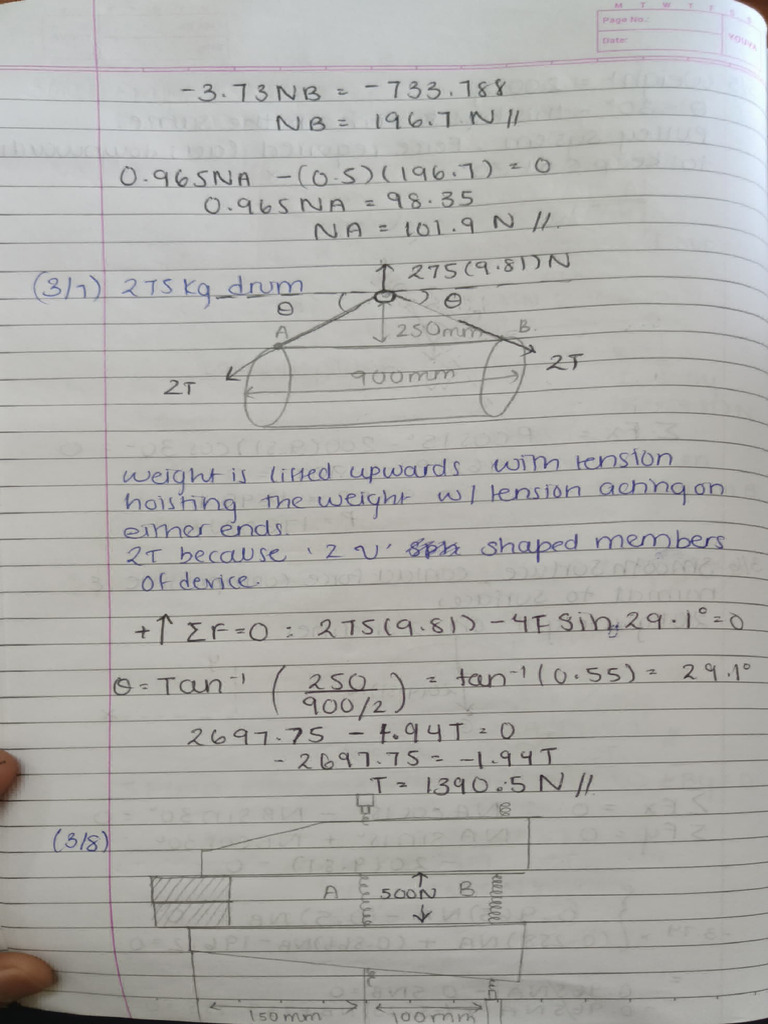 M T W T F S S
Page No.:
Date:
YOUVA
-3.73NB = -733.788
NB = 196.7 N //
0.965NA - (0.5)(196.7) = 0
0.965NA = 98.35
NA = 101.9 N //.
(3/7) 275kg drum
↑ 275(9.81)N
θ θ
A 250mm B.
900mm
2T 2T
weight is lifted upwards with tension
hoisting the weight w/ tension acting on
either ends.
2T because '2 V' shaped members
of device.
+↑ ΣF=0 : 275(9.81) - 4T sin 29.1° = 0
θ = Tan⁻¹ (250 / 900/2) = tan⁻¹(0.55) = 29.1°
2697.75 - 1.94T = 0
- 2697.75 = -1.94T
T = 1390.5 N //
(3/8)
B
A 500N B
C
150mm 100mm